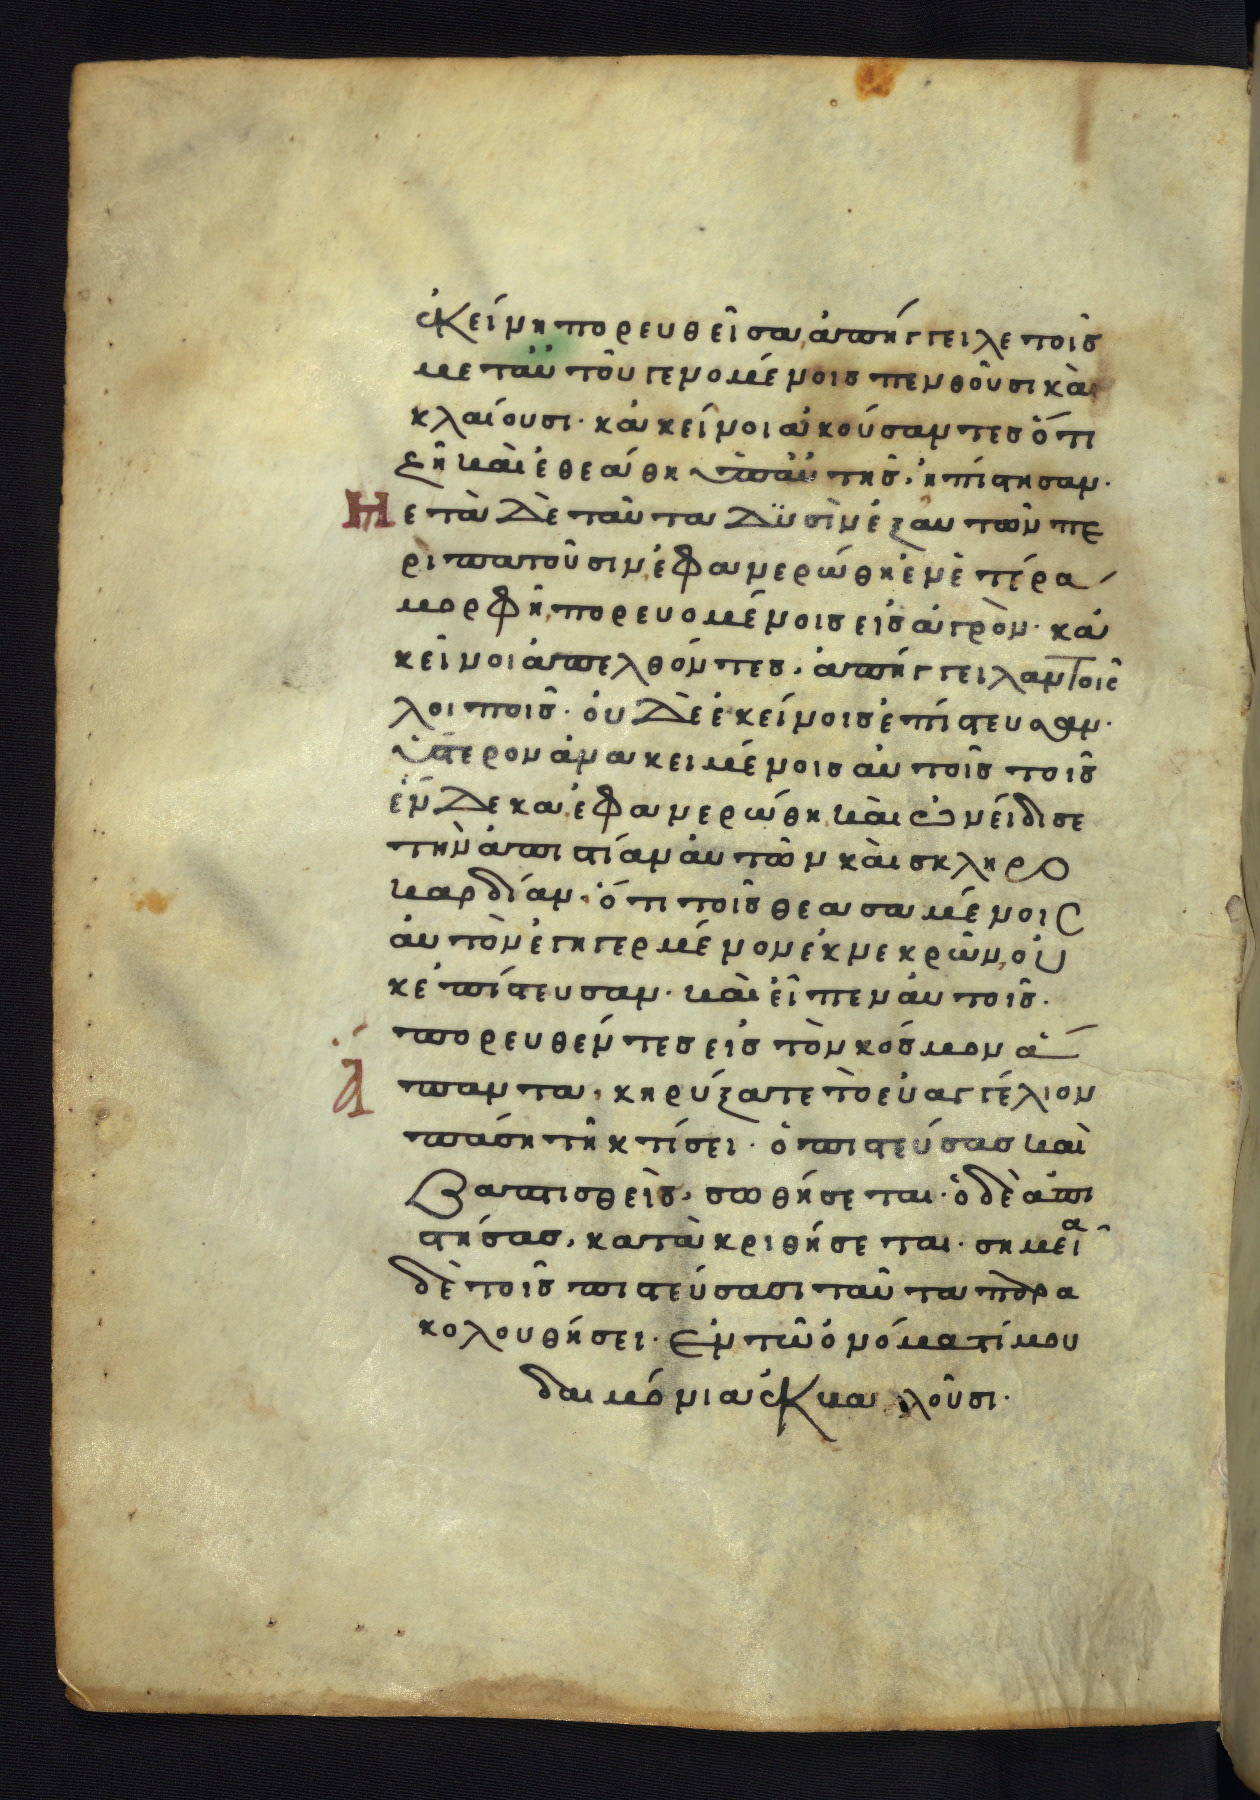 ἐκείνη πορευθεῖσα ἀπήγγειλε τοῖς
μετ' αὐτοῦ γενομένοις πενθοῦσι καὶ
κλαίουσι· κἀκεῖνοι ἀκούσαντες ὅτι
ζῆ καὶ ἐθεάθη ὑπ' αὐτῆς, ἠπίστησαν·
Μετὰ δὲ ταῦτα δϋσὶν ἐξ αὐτῶν πε
ριπατοῦσιν, ἐφανερώθη ἐν ἑτέρα
μορφῆ, πορευομένοις εἰς ἀγρόν· κἀ
κεῖνοι ἀπελθόντες, ἀπήγγειλαν τοῖς
λοιποῖς· οὐδὲ ἐκείνοις ἐπίστευσαν·
ὕστερον ἀνακειμένοις αὐτοῖς τοῖς
ἕνδεκα ἐφανερώθη, καὶ ὠνείδισε
τὴν ἀπιστίαν αὐτῶν καὶ σκληρο
καρδίαν· ὅτι τοῖς θεασαμένοις
αὐτὸν ἐγηγερμένον ἐκ νεκρῶν, οὐ
κ ἐπίστευσαν· καὶ εἶπεν αὐτοῖς·
πορευθέντες εἰς τὸν κόσμον ἅ
παντα, κηρύξατε τὸ εὐαγγέλιον
πάση τῆ κτίσει· ὁ πιστεύσας καὶ
βαπτισθεὶς, σωθήσεται· ὁ δὲ ἀπι
στήσας, κατακριθήσεται· σημεῖα
δὲ τοῖς πιστεύσασι ταῦτα παρα
κολουθήσει· ἐν τῶ ὀνόματί μου
δαιμόνια ἐκβαλοῦσι·